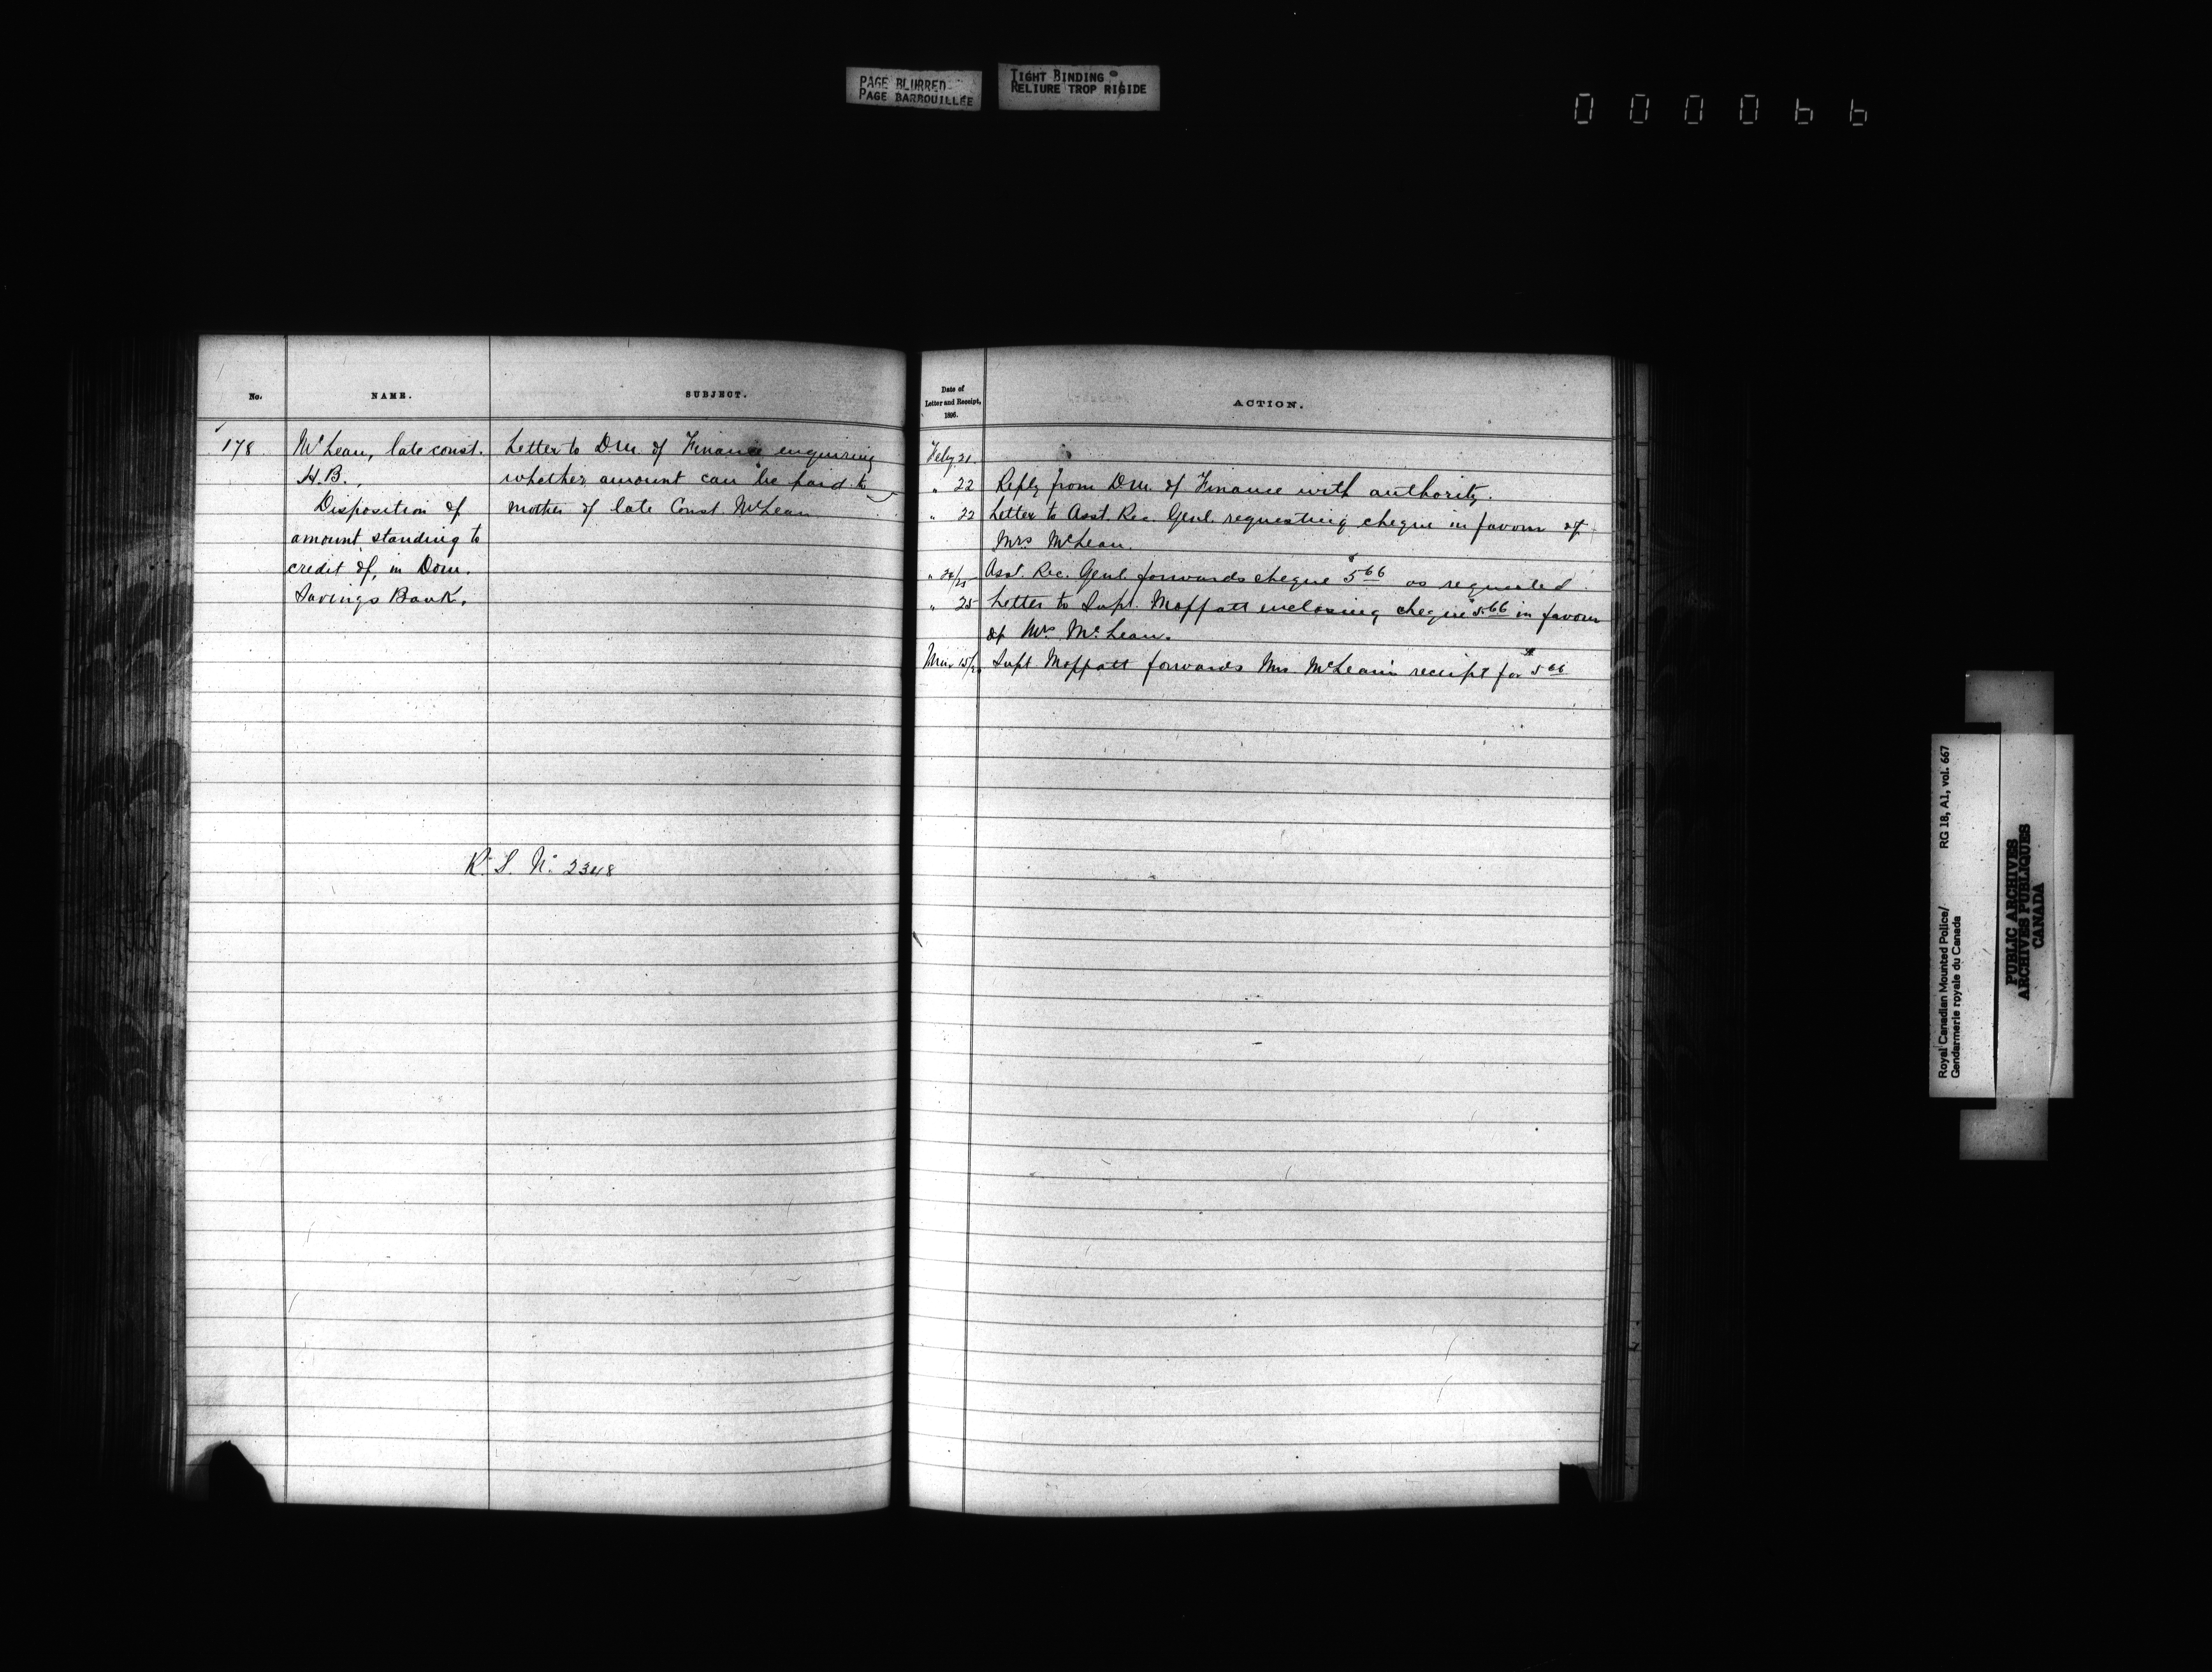 PAGE BLURRED
PAGE BARBOUILLÉE
TIGHT BINDING
RELIURE TROP RIGIDE
000066
No.
NAME.
SUBJECT.
178
McLean, late const.
H.B.,
Disposition of
amount standing to
credit of, in Dom.
Savings Bank.
Letter to D.M. of Finance enquiring
whether amount can be paid to
mother of late Const. McLean
R. S. No. 2348
Date of
Letter and Receipt,
1896.
ACTION.
Feby 21.
" 22 Reply from D.M. of Finance with authority.
" 22 Letter to Asst. Rec. Genl. requesting cheque in favour of
Mrs McLean.
" 24/25 Asst. Rec. Genl. forwards cheque $5.66 as requested.
" 25 Letter to Supt. Moffatt enclosing cheque $5.66 in favour
of Mrs McLean.
Mar 15/20 Supt. Moffatt forwards Mrs McLean's receipt for $5.66
Royal Canadian Mounted Police/ RG 18, A1, vol. 667
Gendarmerie royale du Canada
PUBLIC ARCHIVES
ARCHIVES PUBLIQUES
CANADA